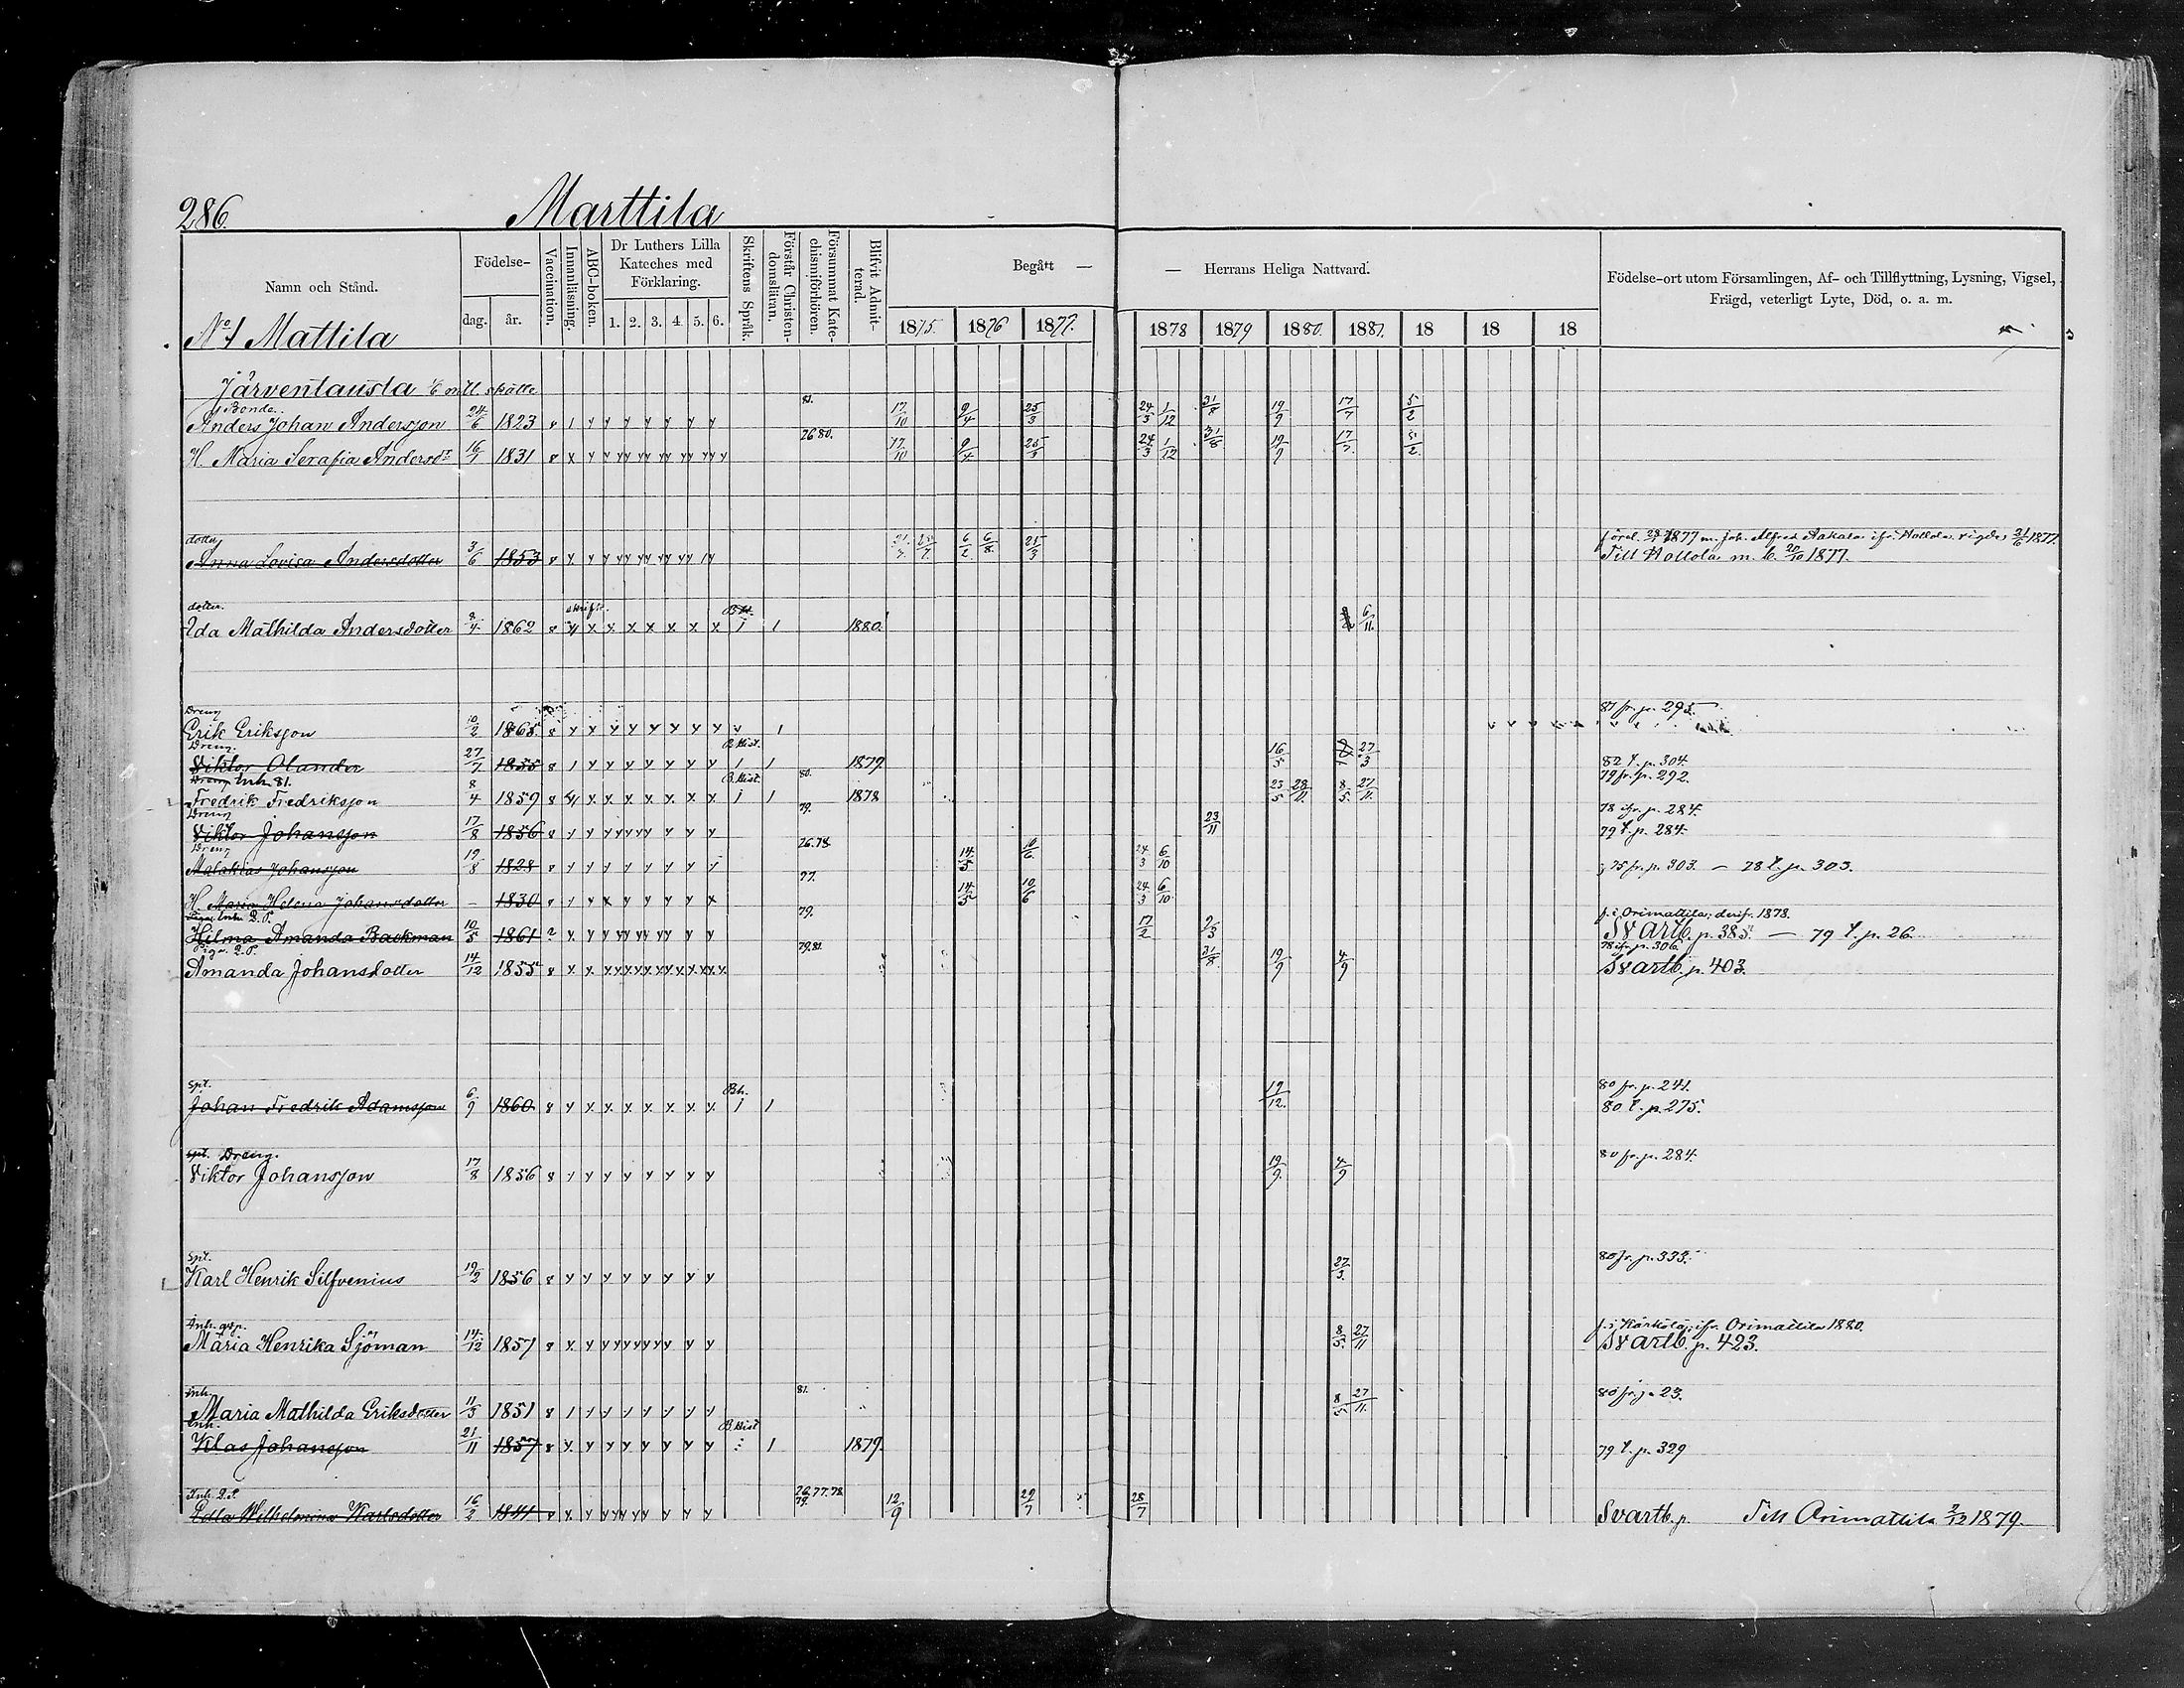 286. Marttila
Namn och Stånd.
Födelse-
dag. år.
Vaccination.
Innanläsning.
ABC-boken.
Dr Luthers Lilla
Kateches med
Förklaring.
1. 2. 3. 4. 5. 6.
Skriftens Språk.
Förstår Christen-
domsläran.
Försummat Kate-
chismiförhören.
Blifvit Admit-
terad.
Begått —
— Herrans Heliga Nattvard.
1875. 1876 1877. 1878 1879 1880. 1881. 18 18 18
Födelse-ort utom Församlingen, Af- och Tillflyttning, Lysning, Vigsel,
Frägd, veterligt Lyte, Död, o. a. m.
No 1 Mattila
Järventausta
Bonde. 81.
Anders Johan Andersson 24/6 1823 17/10 9/4 25/3 24/3 1/12 31/8 19/9 17/7 5/2
76 80.
H. Maria Serafia Andersdr 16/7 1831 17/10 9/4 25/3 24/3 1/12 31/8 19/9 17/7 5/2
dotter
Anna Lovisa Andersdotter 3/6 1853 6/2 6/8 25/3
Till Hollola m. b. 20/10 1877.
dotter.
Ida Mathilda Andersdotter 8/4 1862 1 1 1880. 6/11.
Dreng 87 fr. p. 295
Erik Eriksson 10/2 1865
Dreng. B. Hist.
Viktor Olander 27/7 1855 1 1 1879 16/5 27/3 82 t. p. 304.
Dreng Inh. 81. B. Hist. 80. 79 fr. p. 292.
Fredrik Fredriksson 8/4 1859 1 1 1878 23/5 28/11 8/5 27/11
Dreng 79. 78 ifr. p. 284.
Viktor Johansson 17/8 1856 23/11 79 t. p. 284.
Dreng 76. 78
Malakias Johansson 19/8 1828 14/5 10/6 24/3 6/10 75 fr. p. 303. — 78 t. p. 303.
77.
H. Maria Helena Johansdotter – 1830 14/5 10/6 24/3 6/10
79. f. i Orimattila; derifr. 1878.
Hilma Amanda Backman 10/5 1861 ? 17/2 9/3 Svartb. p. 385. — 79 t. p. 26.
Piga. 79. 81. 78 ifr. p. 306.
Amanda Johansdotter 14/12 1855 31/8 19/9 4/9 Svartb. p. 403.
Spt. Bh. 80 fr. p. 241.
Johan Fredrik Adamsson 6/9 1860 1 1 19/12. 80 t. p. 275.
spt. Dreng. 80 fr. p. 284.
Viktor Johansson 17/8 1856 19/9. 4/9
Spt. 80 fr. p. 333.
Karl Henrik Silfvenius 19/2 1856 27/3.
f. i Kärkölä; ifr. Orimattila 1880.
Maria Henrika Sjöman 14/12 1857 8/5. 27/11 Svartb. p. 423.
inh. 81. 80 fr. p. 23.
Maria Mathilda Eriksdotter 11/3 1851 8/5 27/11.
Inh. B. Hist
Klas Johansson 21/11 1857 1 1879. 79 t. p. 329
Inh. 76. 77. 78. 79.
Edla Wilhelmina Karlsdotter 16/2 1841 12/9 29/7 28/7 Svartb. p. Till Orimattila 2/12 1879.